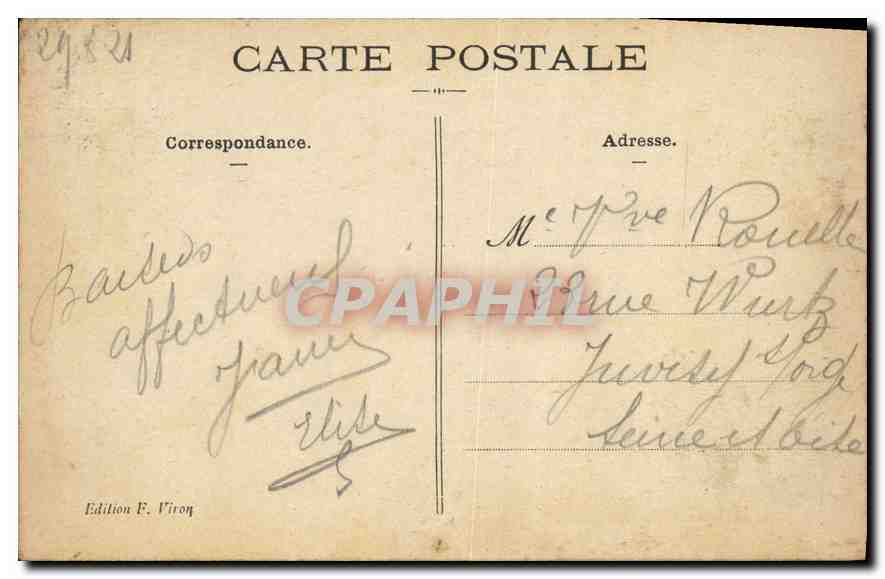 29 8 21
CARTE POSTALE
Correspondance.
Adresse.
Baisers
affectueux
Elise
Me Vve Rouelle
33 rue Wurtz
Juvisy s/ orge
Seine et Oise
CPAPHIL
Edition F. Viron